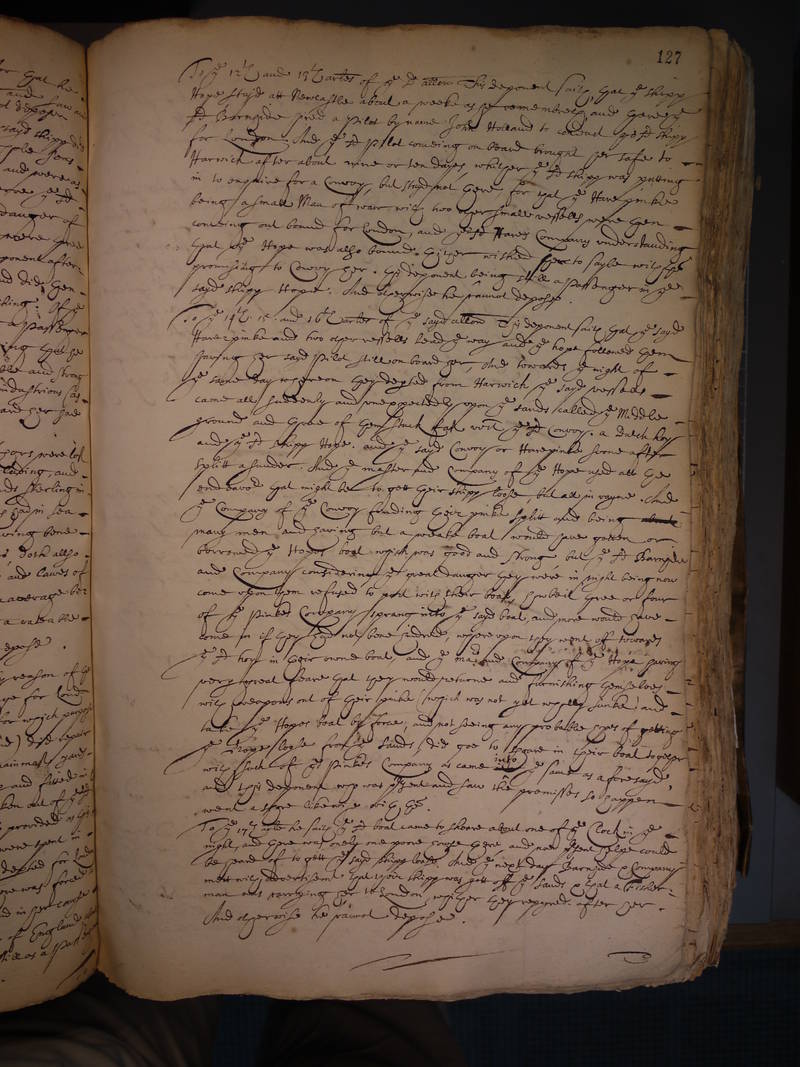 127
To ye 12th and 13th artes of ye sd allon this deponent saith, that ye shipp
Hope stayd att Newcastle about a weeke as he remembreth and there ye
sd Barnside hired a Pilot by name John Holland to conduct ye sd shipp
for London. And ye sd Pilot comeing on board brought her safe to
Harwich after about nine or ten dayes, whither ye sd shipp was putting
in to enquire for a Convoy, but stayd not there for that ye Hare pinke
being a small Man of warr with two other small vessells were then
comeing out bound for London, and ye sd Hares Company understanding
that ye Hope was also bound thither wished her to sayle with them
promising to Convoy her. this deponent being still a passenger in ye
sayd shipp Hope. And otherwise he cannot depose.
To ye 14th 15 and 16th artes of ye sayd allon this deponent saith that ye sayd
Hare pinke and two other vessells lead ye way and ye hope followed them
having her sayd Pilot still on board her, And towards ye night of
ye same day whereon they departed from Harwich ye sayd vessells
came all suddenly and unexpectedly upon ye sands called ye Middle
ground and three of them stuck fast vizt ye sd Convoy, a dutch hoy
and ye sd shipp Hope. and ye sayd Convoy or Hare pinke some after
splitt asunder. And ye master and Company of ye Hope used all the
endeavor that might be to gett their shipp loose, but all in vayne. And
ye Company of ye Convoy finding their pinke splitt and being
many men and having but a weake boat would have gotten or
borrowed ye Hopes boat which was good and strong but ye sd Barnside
and Company considering ye great danger they were in might being now
come upon them refused to part with their boat, soe three or four
of ye Pinkes Company sprang into ye sayd boat, and more would have
come in if they had not bine hindred, where upon they went off towards
ye sd hoy in their owne boat, and ye master and Company of ye Hope having
very great feare that they would returne and furnishing themselves
with weapons out of their pinke (which was not yet wholly sunke) and
take ye Hopes boat by force, and not seeing any probable hopes of getting
ye Hope loose from ye sands, did goe to shoare in their boat together
with such of ye Pinkes Company as came into ye same as aforesayd,
and this deponent who was present and saw the premisses so happen
went a shore likewise with them.
To ye 17th arte he saith ye sd boat came to shoare about one of ye Clock in ye
night, and there was onely one poore house there and noe present helpe could
be heard of to gett ye sayd shipp loose. And ye next day Barnside & Company
mett with advertisement that their shipp was gott off ye sands & that a Fisher
man was carrying her to London, whither they repayred after her.
And otherwise he cannot depose.